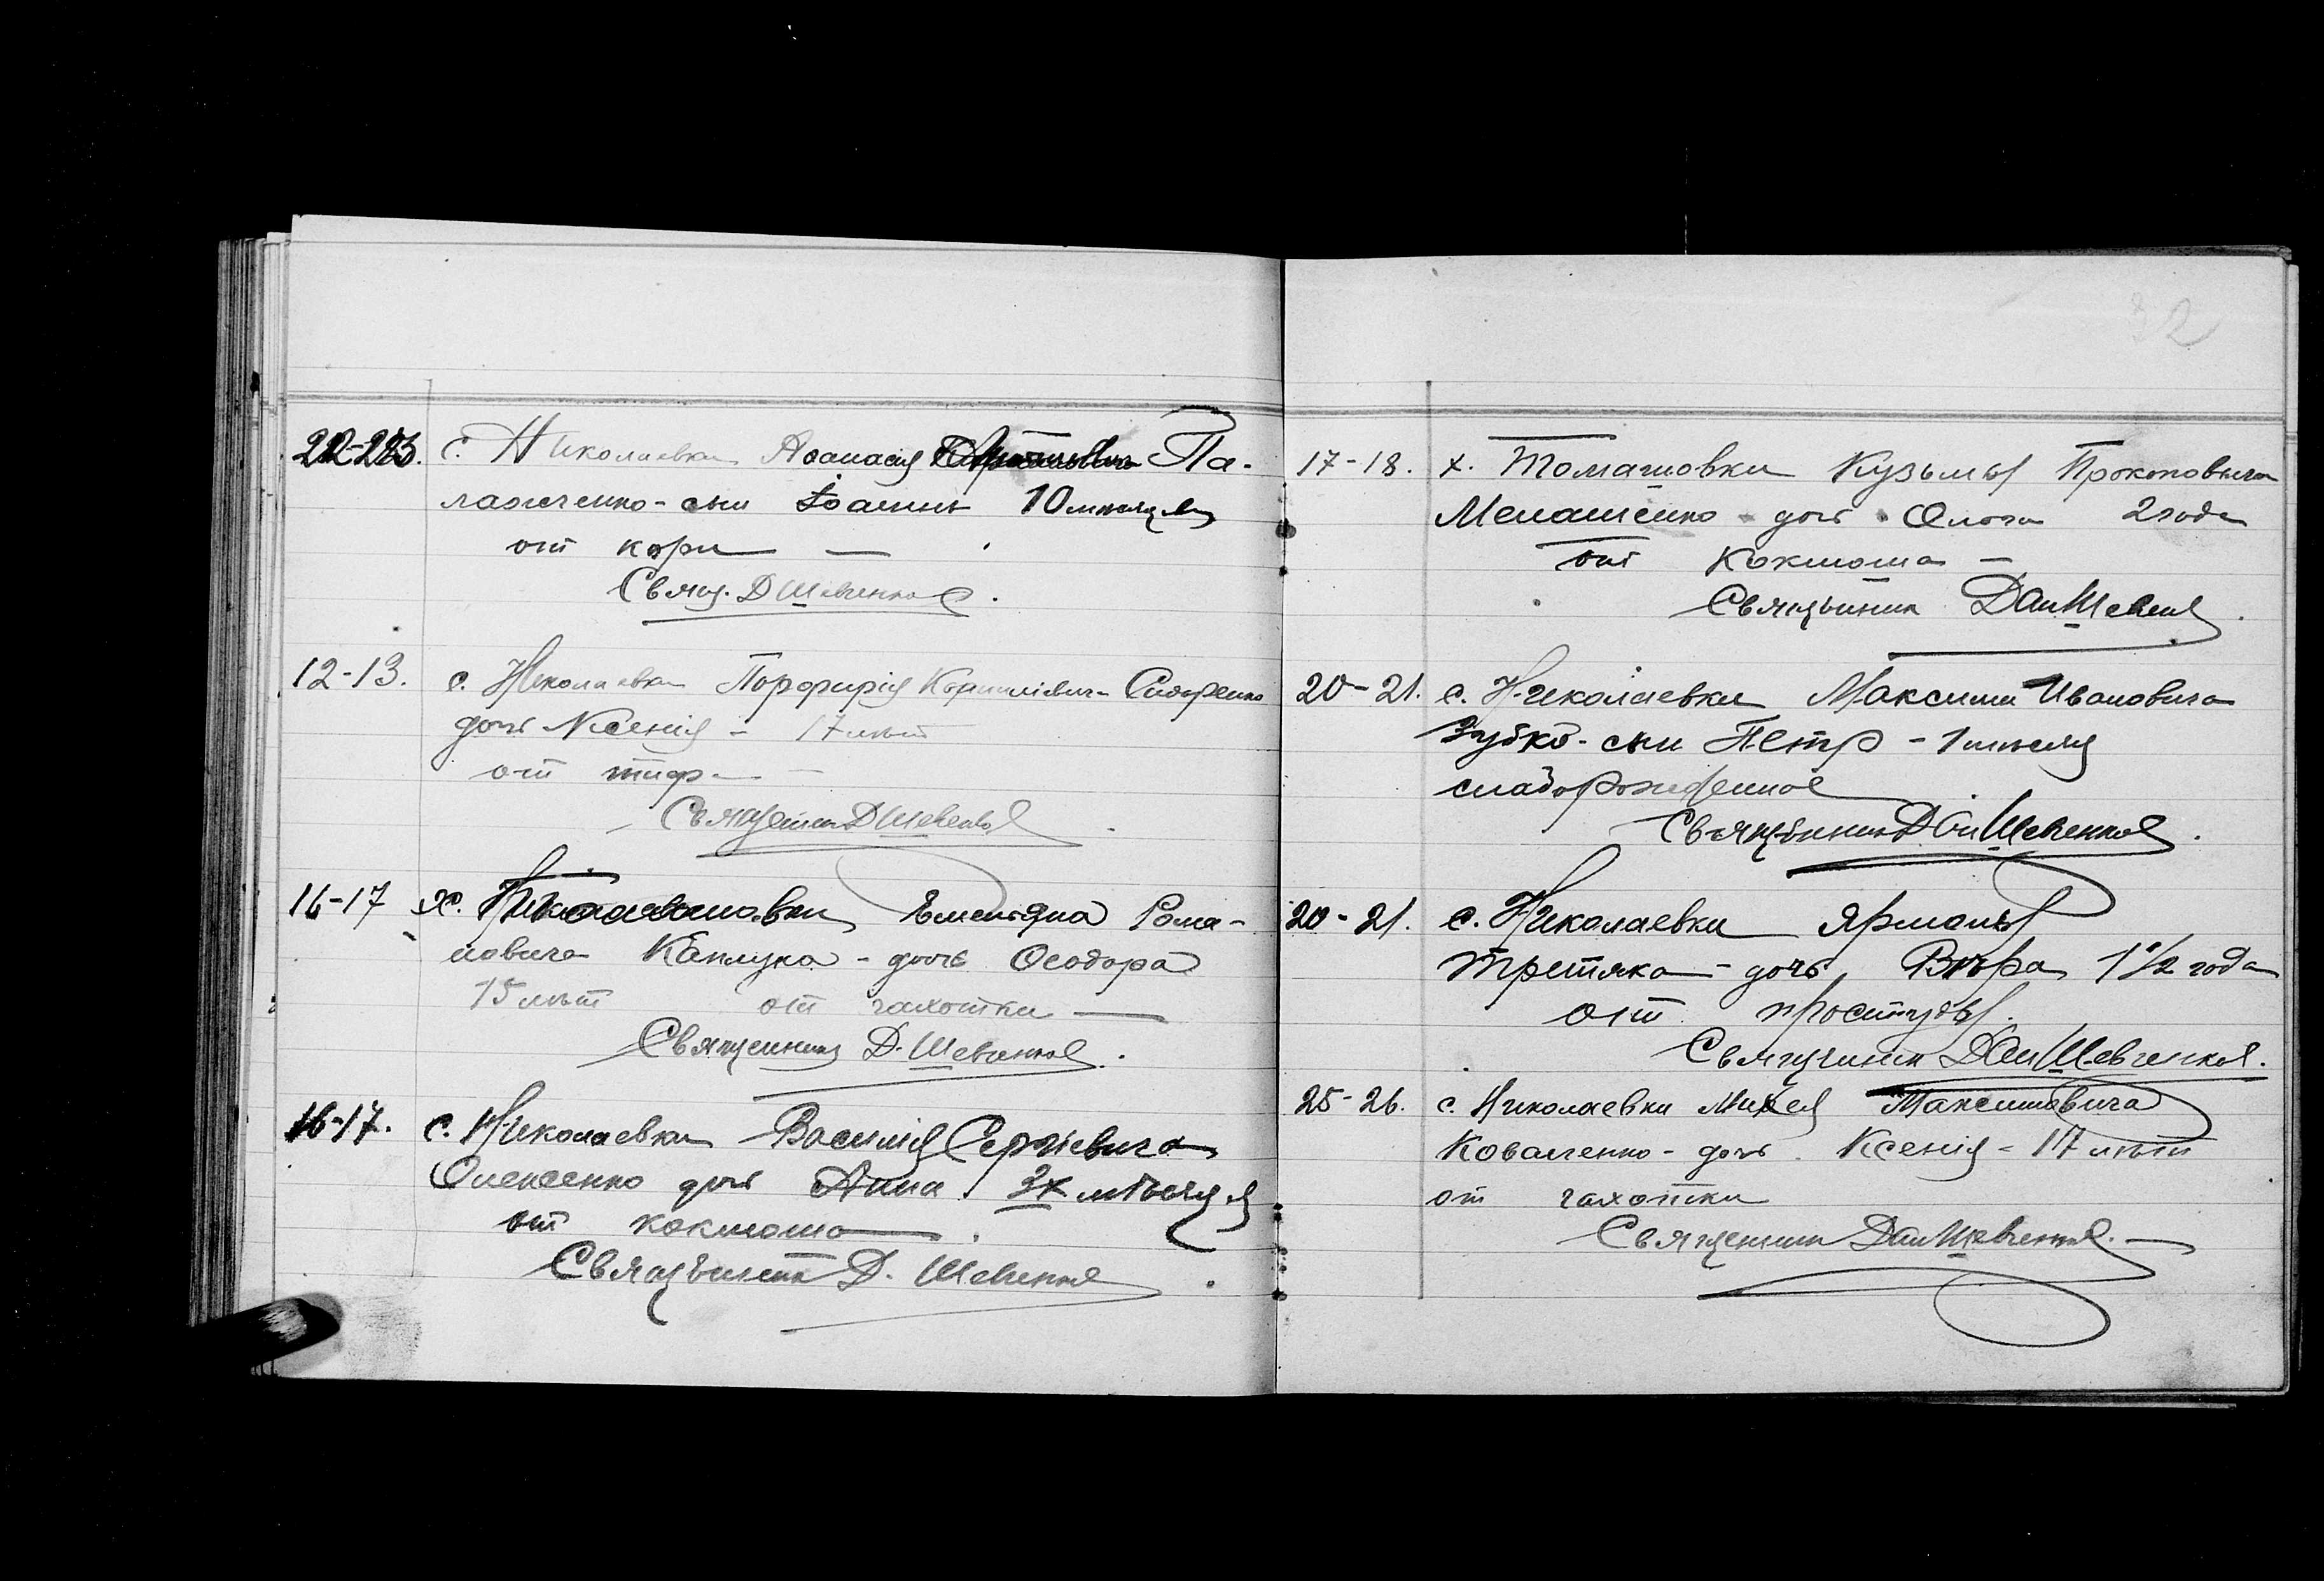 22-23. с. Николаевки Афанасія Па-
лажченко - сын Іоаннъ 10 мѣсяцев
от кори —
Свящ. Д Шевченко.
12-13. с. Николаевки Порфирія Корниліевича Сидоренко
дочь Ксенія - 17 лѣт
от тифа —
Священник Д Шевченко
16-17 х. Емельяна Рома-
новича - дочь Феодора
15 лѣт от чахотки —
Священникъ Д. Шевченко.
16-17. с. Николаевки Василія Сергіевича
Олексенко дочь Анна. 3х мѣсяцев
от коклюша.
Священник Д. Шевченко.
32
17-18. х. Томашовки Кузьмы Прокоповича
Менашенко - дочь Ольга 2 года
от коклюша —
Священник Дан Шевченко.
20-21. с. Николаевки Максима Ивановича
Зубко - сын Петр - 1 мѣсяц
слаборожденное
Священник Дан Шевченко.
20-21. с. Николаевки Ярмолы
Третяка - дочь Вѣра 1 1/2 года
от простуды.
Священник Дан Шевченко.
25-26. с. Николаевки Михея Максимовича
Коваленко - дочь Ксенія - 17 лѣт
от чахотки
Священник Дан Шевченко. —